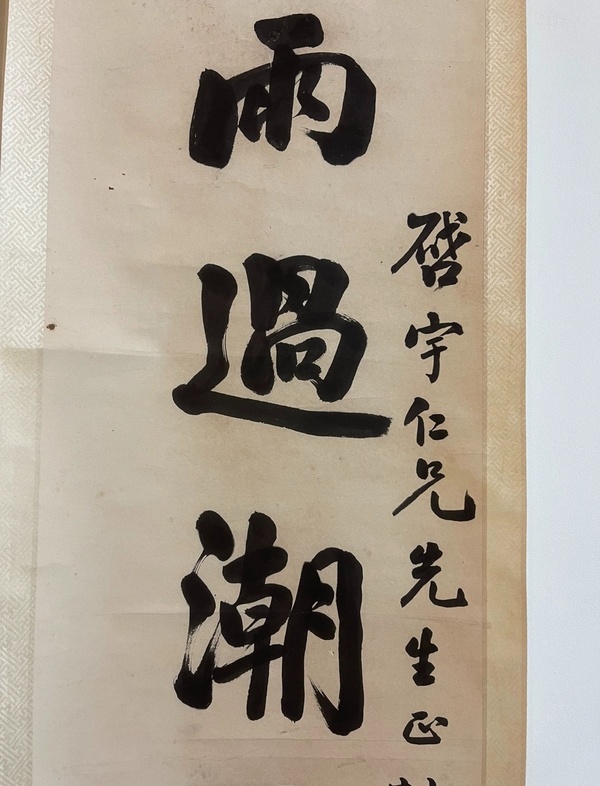 啓宇仁兄先生正
雨過潮